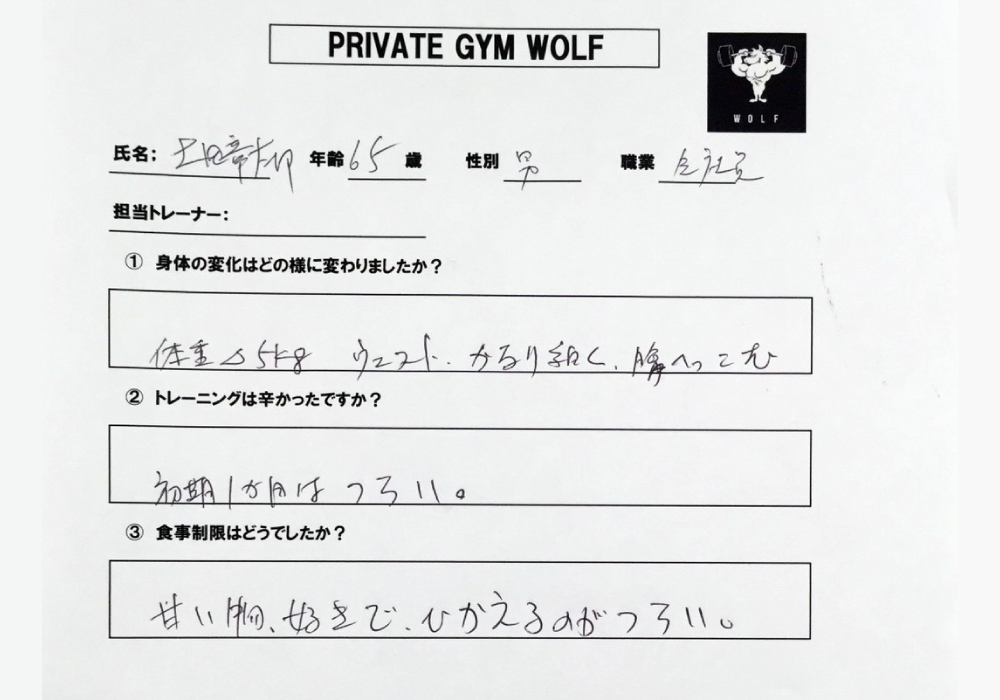 PRIVATE GYM WOLF
WOLF
氏名: 年齢 65 歳 性別 男 職業 会社員
担当トレーナー:
① 身体の変化はどの様に変わりましたか?
体重△5kg ウェスト、かなり細く、腹へっこむ
② トレーニングは辛かったですか?
初期1か月は つらい。
③ 食事制限はどうでしたか?
甘い物、好きで、ひかえるのがつらい。